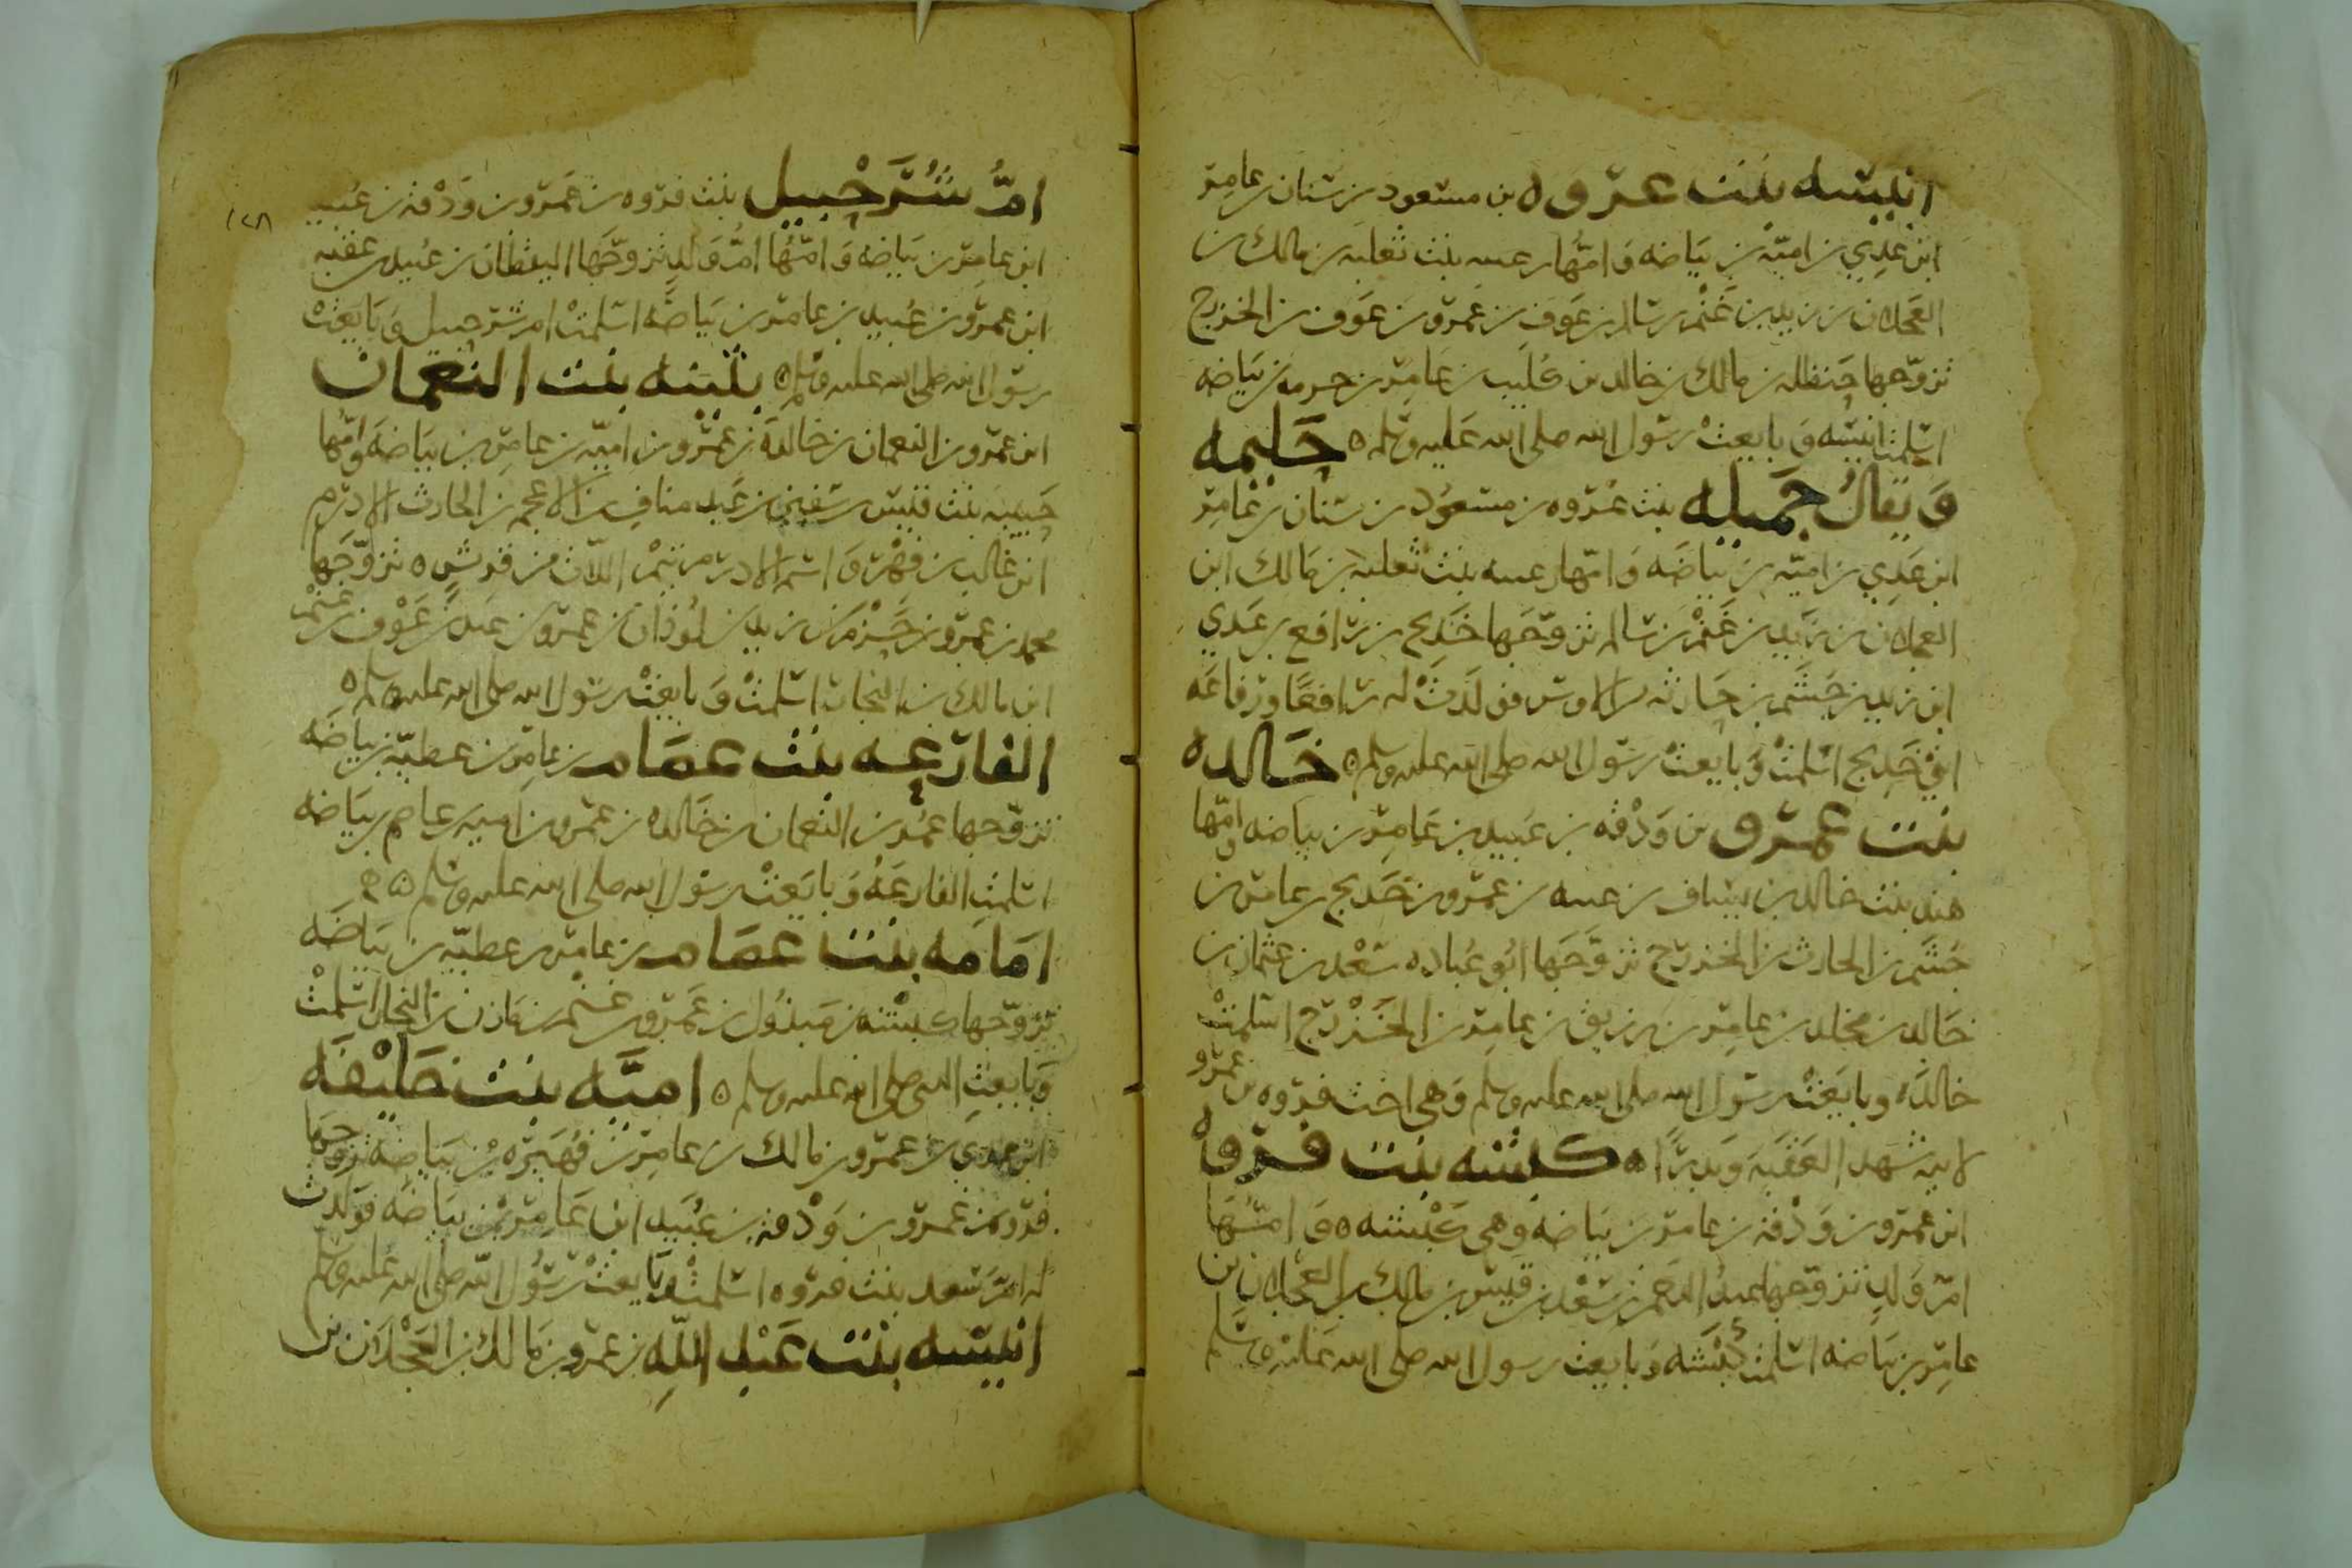 انيسه بنت عروه بن مسعود بن سنان بن عامر
ابن عدي بن اميّه بن بياضه وَامّها رعىىه بنت ثعلبه بن مالك بن
العجلان بن زيد بن غَنْم بن سالم بن عَوف بن عَمرو بن عَوف بن الخزرج
تزوّجها حنظله بن مالك بن خالد بن كُليب بن عَامِر بن خرمه بن بَياضه
اسلمت انيسه وَبايعتْ رسول الله صلى الله عَليه وسلم ه حَليمه
وَيقالُ جَميله بنت عُروه بن مسعُود بن سنان بن عَامِر
ابن عَدِي بن اميّه بن بياضَه وَامّها رعىىه بنت ثعلبه بن مَالك ابن
العجلان بن زَيد بن غَنْم بن سَالم تزوّجَها خَدِيج بن رَافع بن عَدِي
ابن زيد بن جُشَم بن حَارثه من الاوس فولَدَتْ له رَافعًا ورفاعَه
ابنيْ خَدِيج اسْلمتْ وَبايعتْ رسول الله صلى الله عليه وسلم ه خَالده
بنت عَمرو بن وَدْفه بن عَبيد بن عَامِر بن بياضه وَامّها
هند بنت خالد بن يساف بن عىىه بن عمرو بن خَديج بن عامر بن
جُشَم بن الحارث بن الخزرج تزوَّجَها ابُو عُباده سَعْد بن عثمان بن
خَالد بن مخلد بن عامِر بن زريق بن عامِر بن الخَزْرَج اسْلمتْ
خالدَه وبايَعتْ رسَول الله صلى الله عليه وسلم وَهي اخت فروه بن عَمرو
لابيه شهَد العَقبَه وَبدرًا ه كبشه بنت فروه
ابن عَمرو بن وَدْفه بن عامر بن بَياضه وَهي كَبْشه ه وَامّهَا
امّ وَلدٍ تزوّجهَا عبدُ الرحمن بن سَعْد بن قيس بن مالك بن العَجلان بن
عامِر بن بَياضه اسْلمت كبْشَه وَبايعت رسول الله صلى الله عَليْه وسَلّم
١٢٨
امُّ شُرَحْبِيل بنت فروه بن عَمرو بن وَدْفه بن عُبيد
ابن عامِر بن بَياضه وَامّهُا امُّ وَلدٍ تزوّجَها اليقظان بن عُبيد بن عقبه
ابن عمرو بن عُبيد بن عامر بن بَياضَه اسْلمتْ ام شرحبيل وَبَايَعتْ
رسول الله صلى الله عليه وسلم ه بثينه بنت النعمان
ابن عمرو بن النعمان بن خالدَه بن عَمْرو بن اميّه بن عامِر بن بيَاضَه وَامّها
حَبيبه بنت قيس بن سفين بن عَبد مناف بن الاعجم بن الحارث الادرم
ابن غالب بن فهْر وَاسْم الادرم تيْم اللات من قريش ه تزوّجَها
محمد بن عَمرو بن حَزْم بن زيد بن لوذان بن عمرو بن عبد بن عَوْف بن غنْم
ابن مالك بن النجار اسْلمتْ وَبايعَتْ رسَول الله صلى الله عليه وسلم ه
الفارعه بنت عصَام بن عامِر بن عطيّه بن بياضَه
تزوّجها عُمر بن النعمان بن خَالده بن عَمرو بن اميه بن عامر بن بيَاضه
اسْلمتِ الفارعَهُ وَبايَعَتْ رسول الله صلى الله عليه وسَلم ه ه
امَامَه بنت عصَام بن عامر بن عطيّه بن بيَاضَه
تزوّجها كبشه بن مَبذُول بن عَمرو بن غنم بن مَازن بن النجار اسْلمتْ
وَبايعتِ النبي صلى الله عليه وسلم ه اميَّه بنت خليْفَه
ابن عدي بن عمرو بن مالك بن عامر بن فُهَيره بن بَياضه تزوجَها
فروه بن عمرو بن وَدْفه بن عُبَيد ابن عَامِر بن بيَاضَه فوَلدت
له امّ سَعد بنت فروه اسْلمتْ وَبايعتْ رسُول الله صلى الله عليه وسلم
انيسه بنْت عَبْد اللّهِ بن عمرو بن مَالك بن العَجْلَان بن